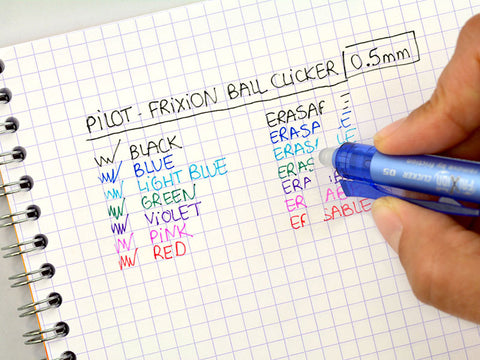 PiLOT - FRiXiON BALL CLiCKER 0.5mm
BLACK
BLUE
LiGHT BLUE
GREEN
ViOLET
PiNK
RED
ERASA E
ERASA LE
ERAS LE
ERAS
ERA
ER AB
ER SABLE
CLICKER 05